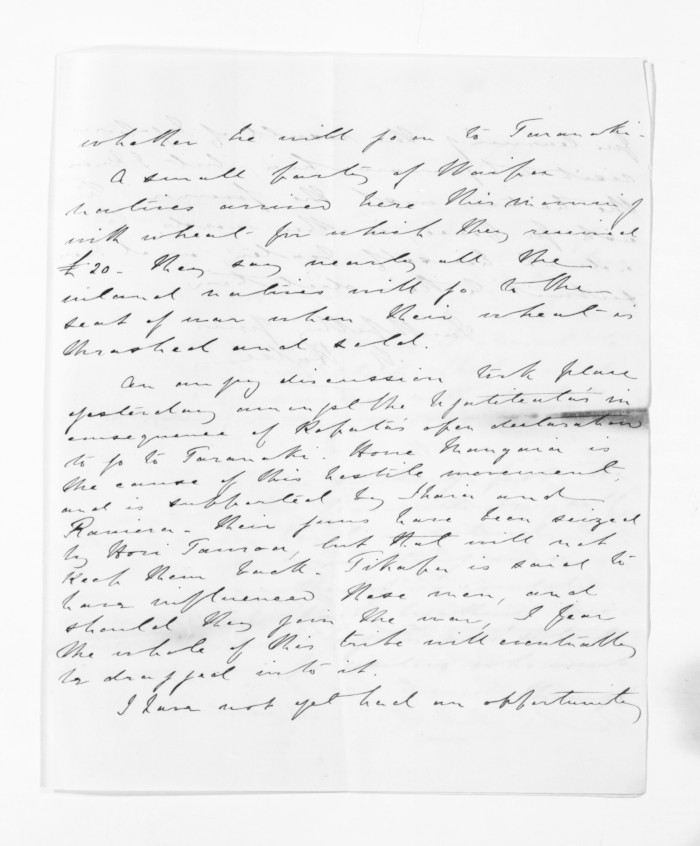 whether he will go on to Taranaki.
A small party of Waipa
natives arrived here this morning
with wheat for which they received
£20 - They say nearly all the
inland natives will go to the
seat of war when their wheat is
thrashed and sold.
An angry discussion took place
yesterday amongst the Ngatitata's in
consequence of Ropata's open declaration
to go to Taranaki. Hone is
the cause of this hostile movement,
and is supported by Ihaia and
Ramiera - their guns have been seized
by Hori Tauroa, but that will not
keep them back. is said to
have influenced these men, and
should they join the war, I fear
the whole of this tribe will eventually
be dragged into it.
I have not yet had an opportunity